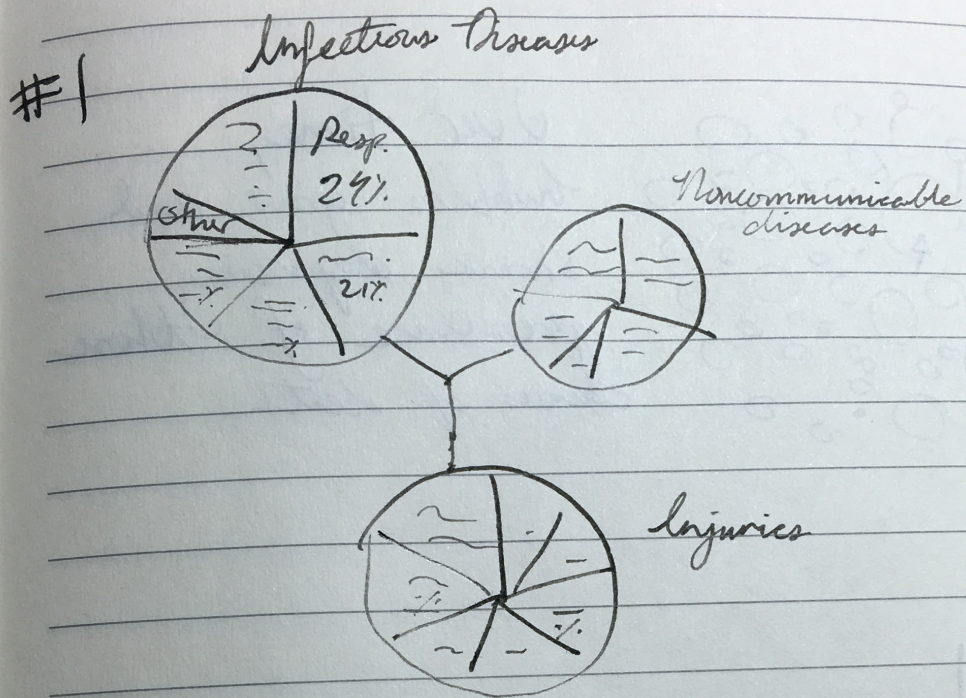 Infectious Diseases
#1
Resp.
24%
Other
21%
Noncommunicable
diseases
Injuries